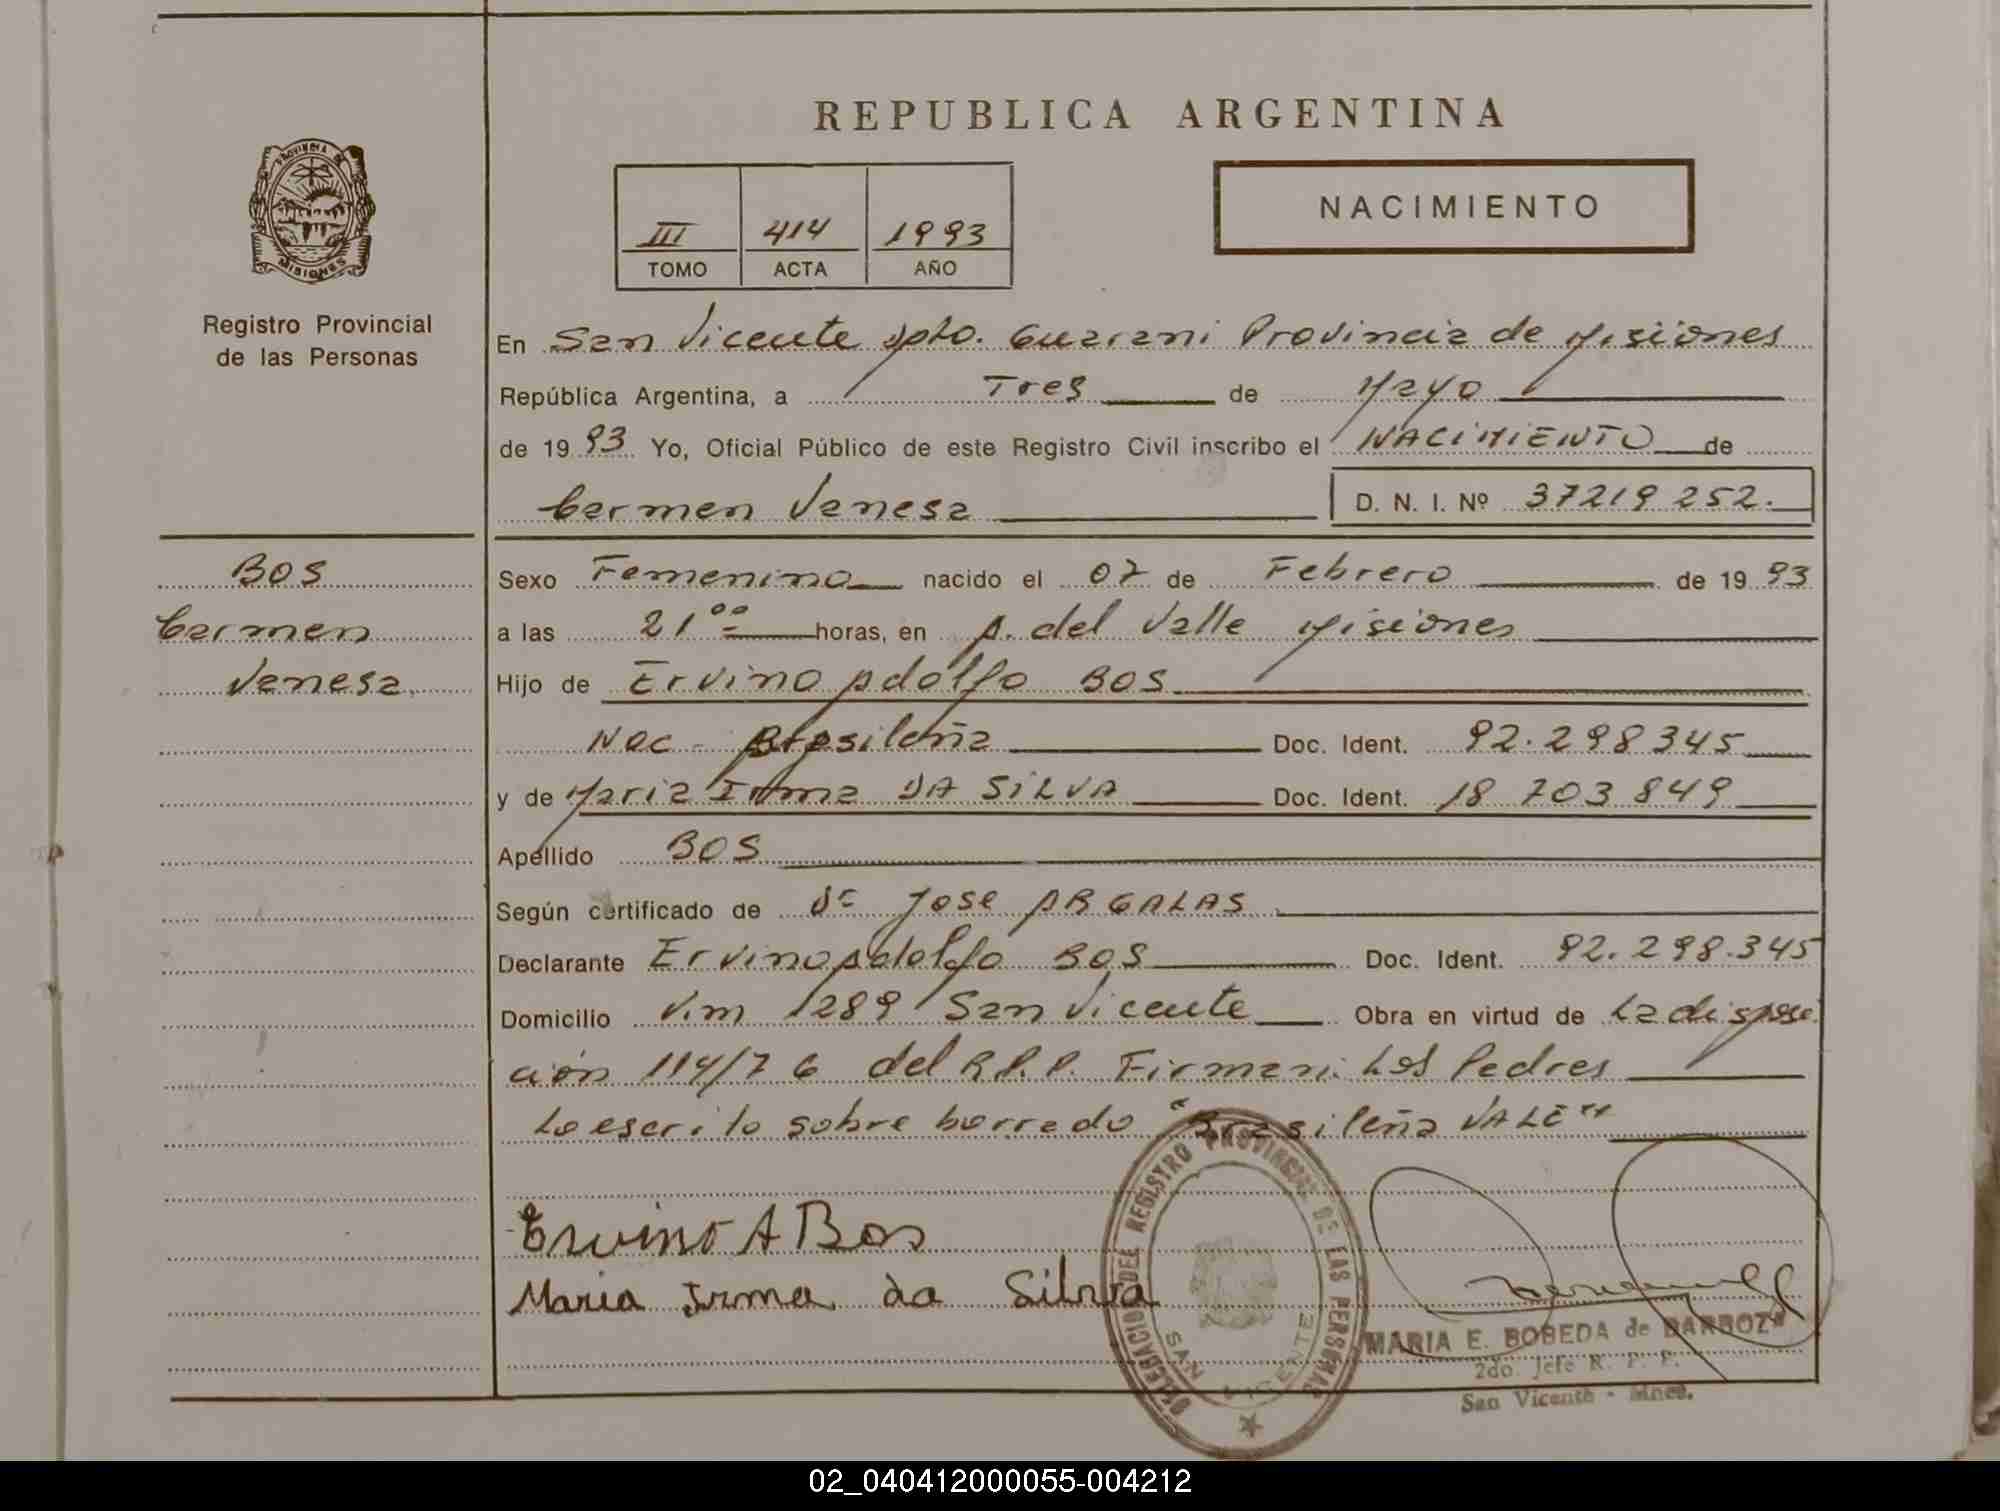 REPUBLICA ARGENTINA
PROVINCIA DE
MISIONES
Registro Provincial
de las Personas
III 414 1993
TOMO ACTA AÑO
NACIMIENTO
En San Vicente Dpto. Guarani Provincia de Misiones
República Argentina, a Tres de Mayo
de 1993 Yo, Oficial Público de este Registro Civil inscribo el NACIMIENTO de
Carmen Vanesa D. N. I. Nº 37219252.
BOS
Carmen
Vanesa
Sexo Femenino nacido el 07 de Febrero de 1993
a las 21 00 horas, en A. del Valle Misiones
Hijo de Ervino Adolfo BOS
Nac - Brasileña Doc. Ident. 92.298345
y de Maria Irma DA SILVA Doc. Ident. 18 703 849
Apellido BOS
Según certificado de Dr Jose ARGALAS
Declarante Ervino Adolfo BOS Doc. Ident. 92.298.345
Domicilio V.m 1289 San Vicente Obra en virtud de La disposi
ción 114/76 del R.P.P. Firman: Los Padres
Lo escrito sobre borrado "Brasileña VALE"
Ervino A Bos
Maria Irma da Silva
DELEGACION DEL REGISTRO PROVINCIAL DE LAS PERSONAS
SAN VICENTE
MARIA E. BOBEDA de BARBOZA
2do. Jefe R. P. P.
San Vicente - Mnes.
02_040412000055-004212